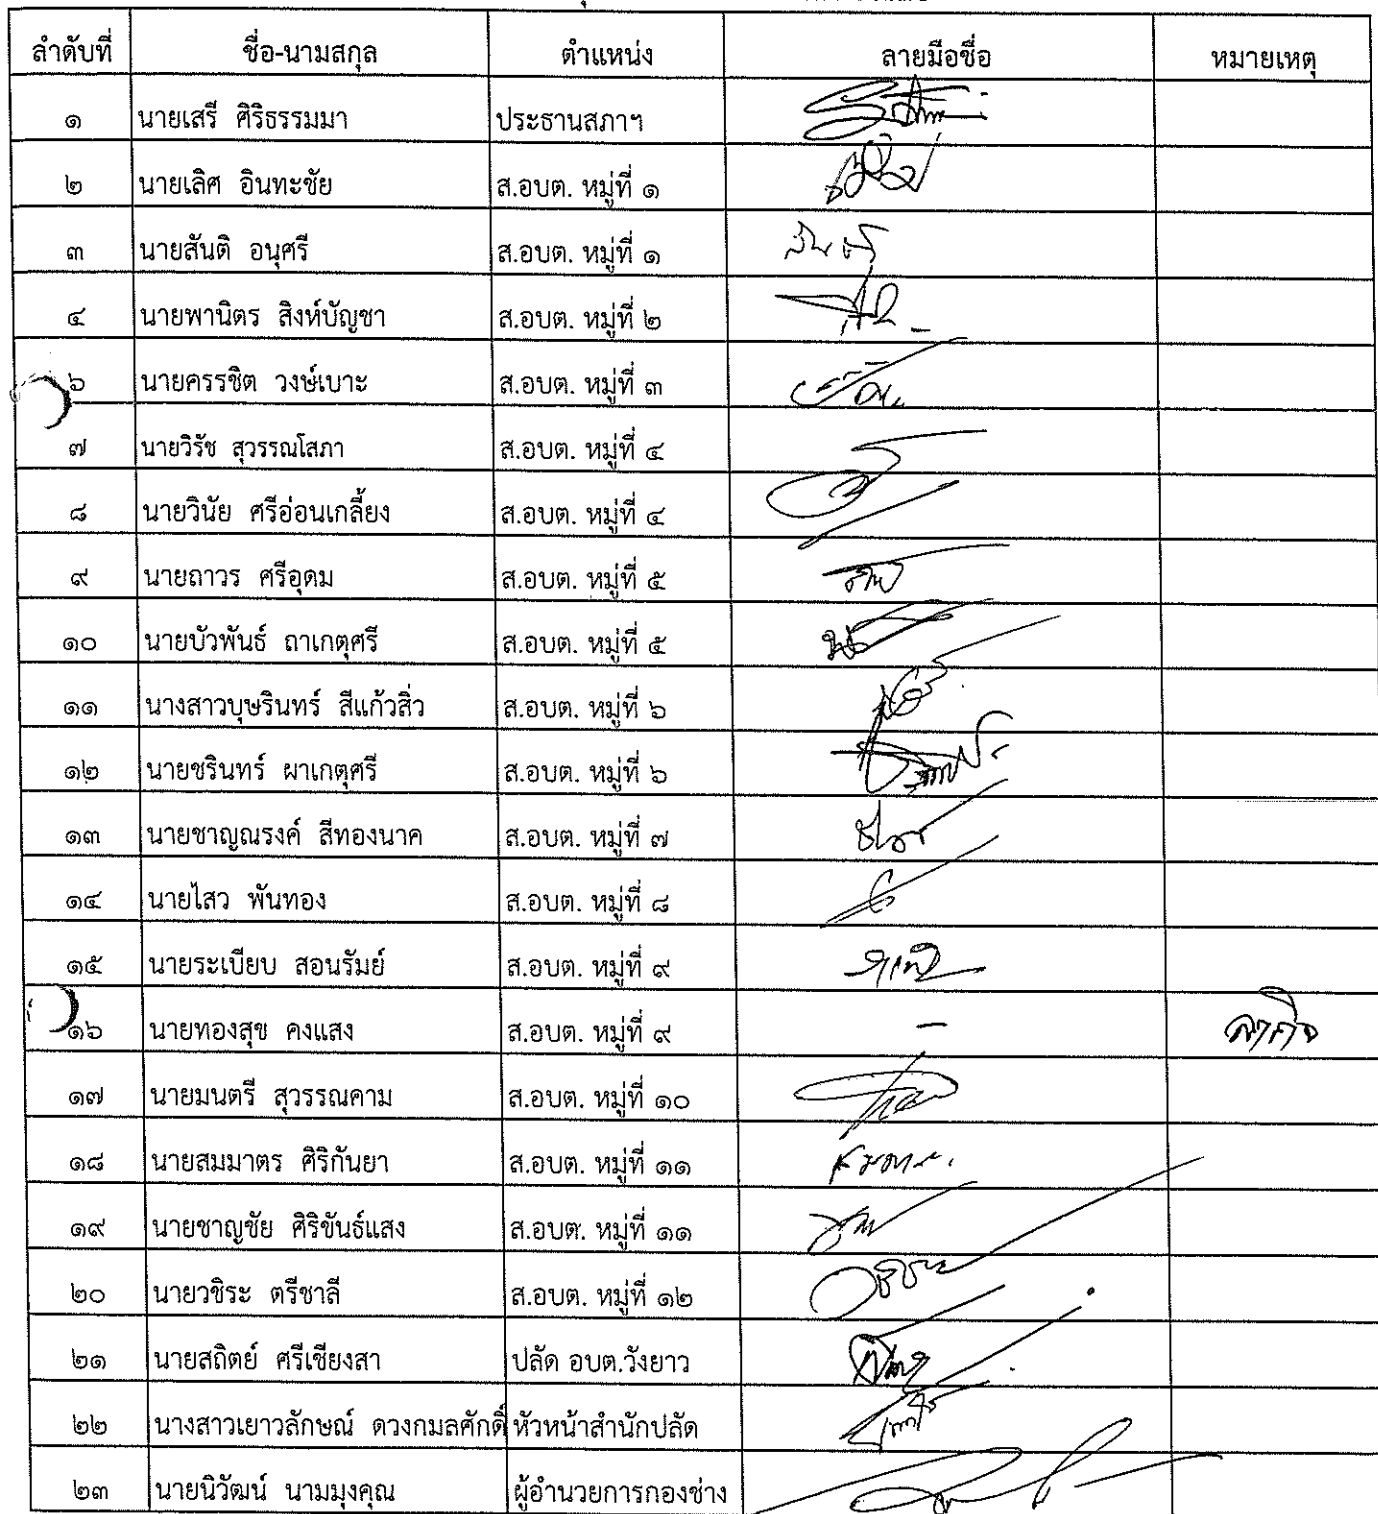 ลำดับที่ ชื่อ-นามสกุล ตำแหน่ง ลายมือชื่อ หมายเหตุ
๑ นายเสรี ศิริธรรมมา ประธานสภาฯ
๒ นายเลิศ อินทะชัย ส.อบต. หมู่ที่ ๑
๓ นายสันติ อนุศรี ส.อบต. หมู่ที่ ๑
๔ นายพานิตร สิงห์บัญชา ส.อบต. หมู่ที่ ๒
๖ นายครรชิต วงษ์เบาะ ส.อบต. หมู่ที่ ๓
๗ นายวิรัช สุวรรณโสภา ส.อบต. หมู่ที่ ๔
๘ นายวินัย ศรีอ่อนเกลี้ยง ส.อบต. หมู่ที่ ๔
๙ นายถาวร ศรีอุดม ส.อบต. หมู่ที่ ๕
๑๐ นายบัวพันธ์ ถาเกตุศรี ส.อบต. หมู่ที่ ๕
๑๑ นางสาวบุษรินทร์ สีแก้วสิ่ว ส.อบต. หมู่ที่ ๖
๑๒ นายชรินทร์ ผาเกตุศรี ส.อบต. หมู่ที่ ๖
๑๓ นายชาญณรงค์ สีทองนาค ส.อบต. หมู่ที่ ๗
๑๔ นายไสว พันทอง ส.อบต. หมู่ที่ ๘
๑๕ นายระเบียบ สอนรัมย์ ส.อบต. หมู่ที่ ๙
๑๖ นายทองสุข คงแสง ส.อบต. หมู่ที่ ๙ - ลากิจ
๑๗ นายมนตรี สุวรรณคาม ส.อบต. หมู่ที่ ๑๐
๑๘ นายสมมาตร ศิริกันยา ส.อบต. หมู่ที่ ๑๑
๑๙ นายชาญชัย ศิริขันธ์แสง ส.อบต. หมู่ที่ ๑๑
๒๐ นายวชิระ ตรีชาลี ส.อบต. หมู่ที่ ๑๒
๒๑ นายสถิตย์ ศรีเชียงสา ปลัด อบต.วังยาว
๒๒ นางสาวเยาวลักษณ์ ดวงกมลศักดิ์ หัวหน้าสำนักปลัด
๒๓ นายนิวัฒน์ นามมุงคุณ ผู้อำนวยการกองช่าง